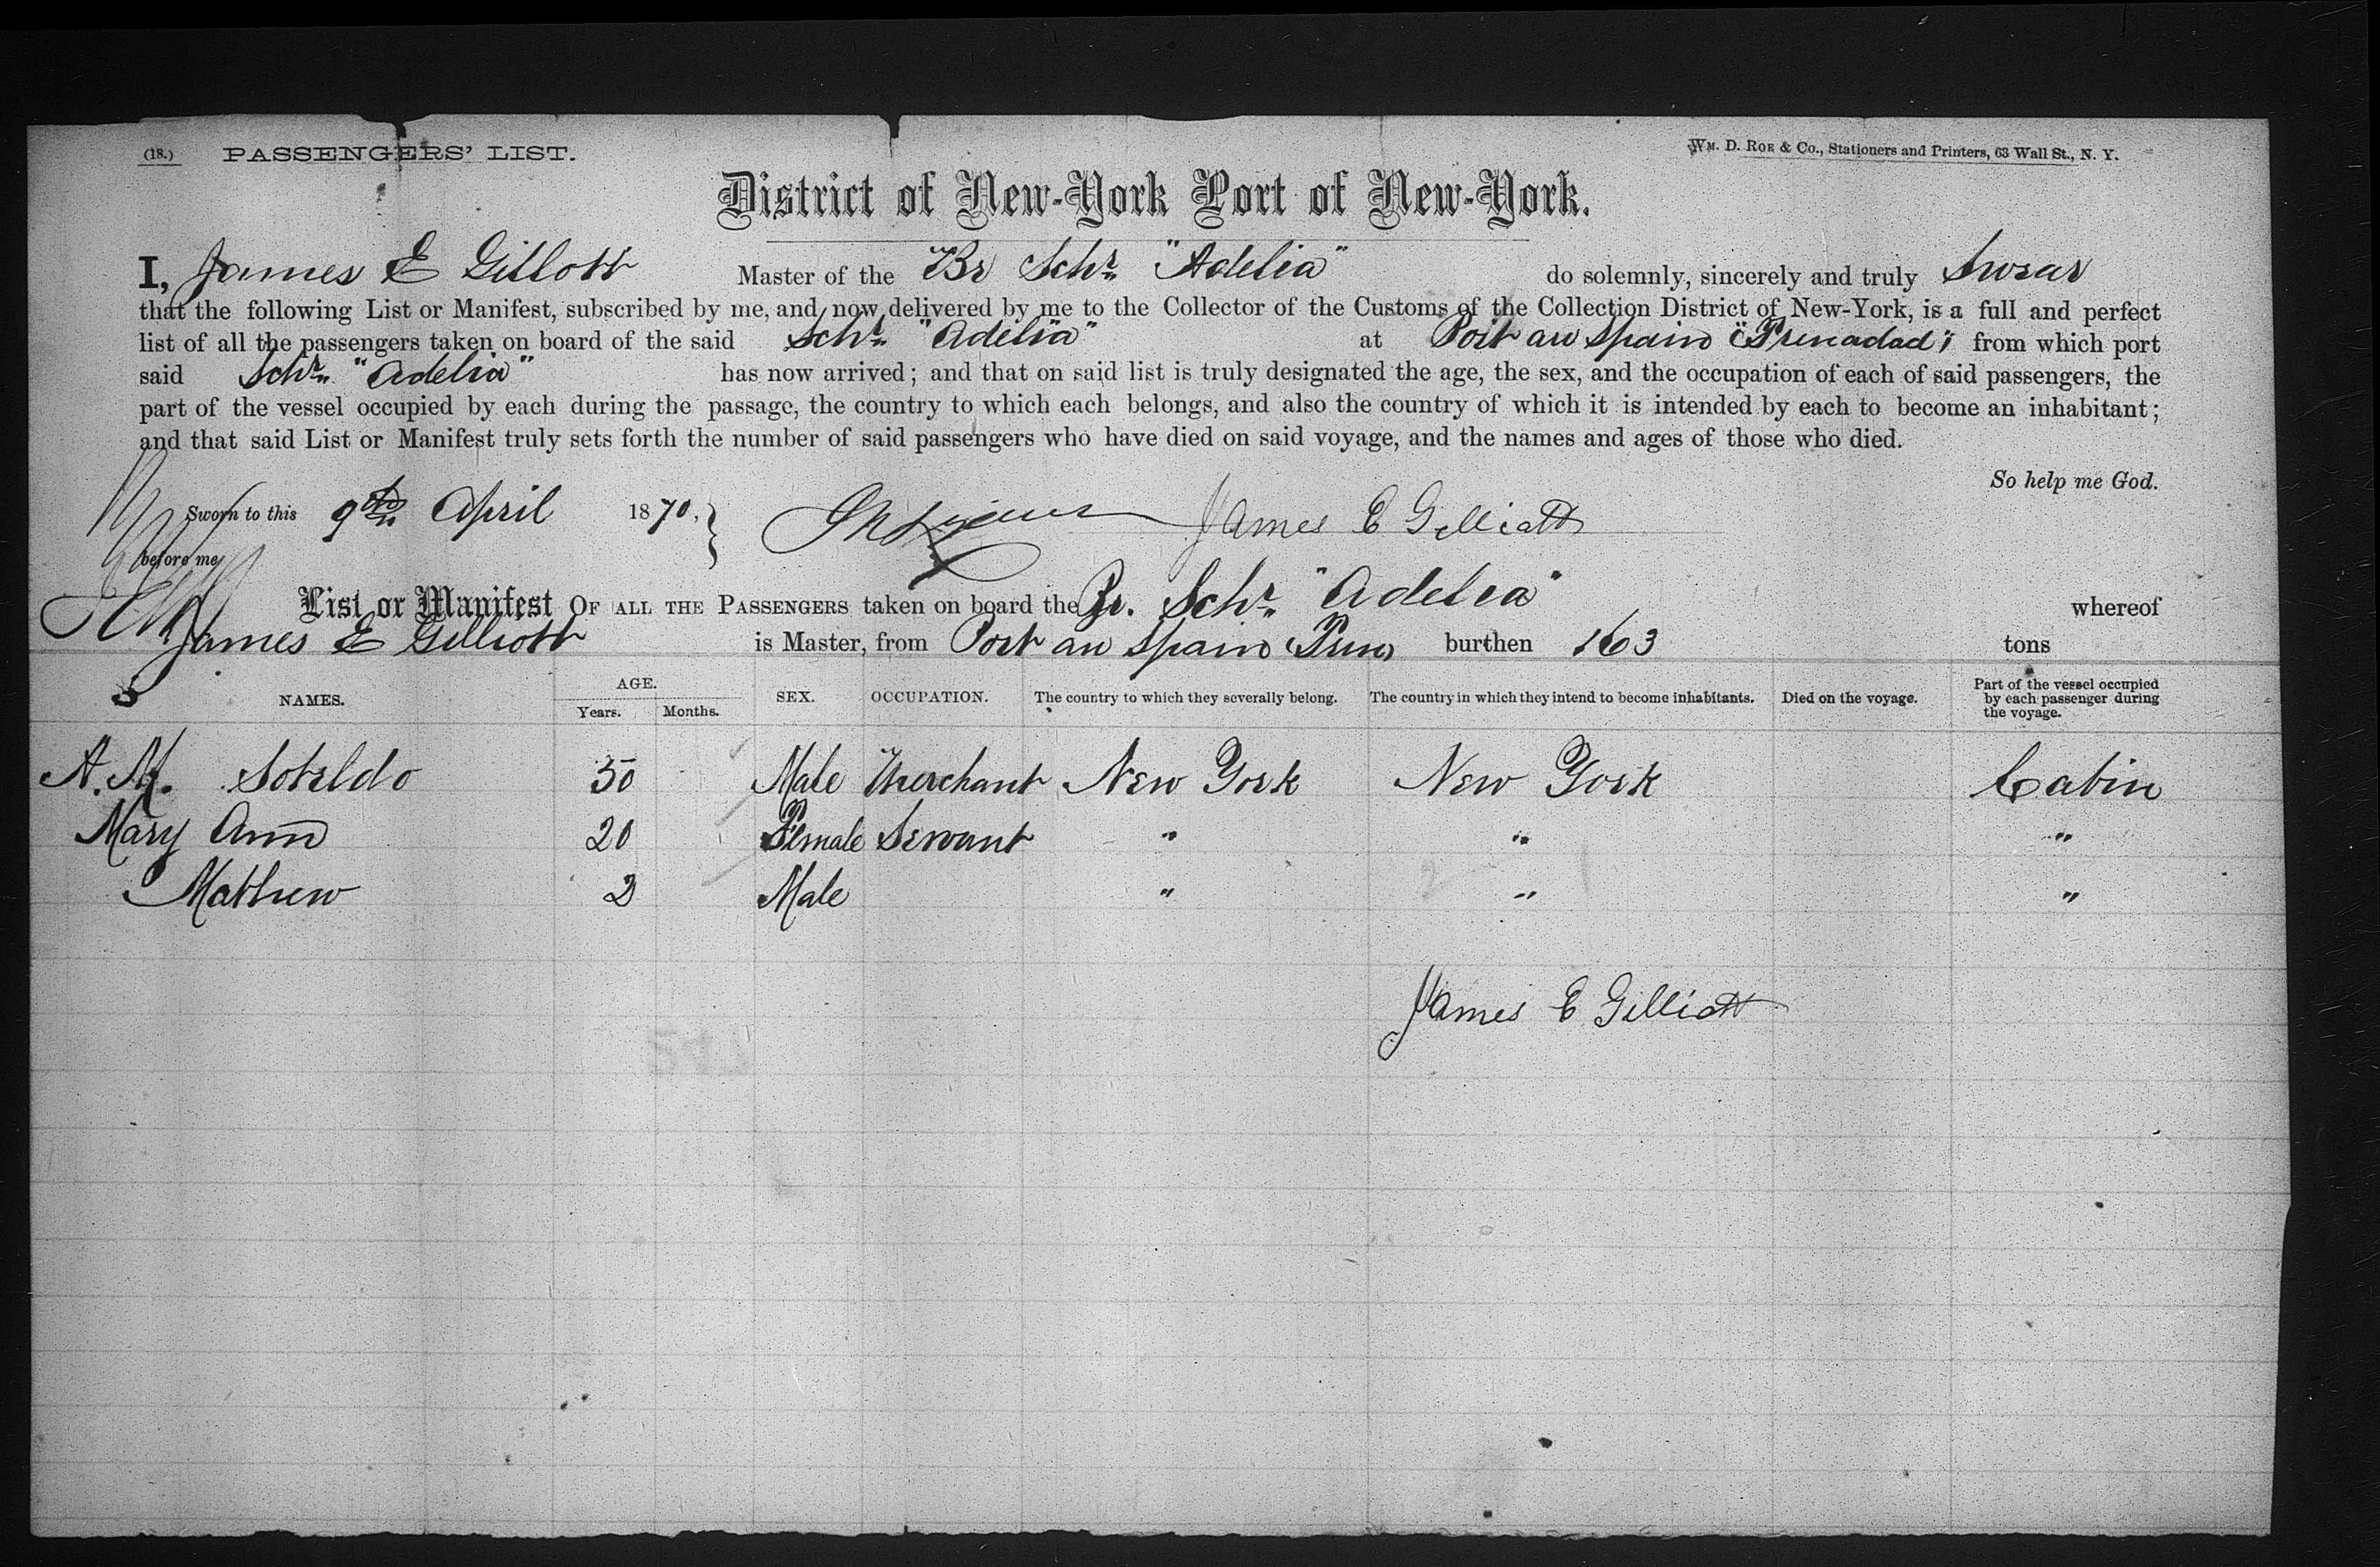 (18.) PASSENGERS' LIST.
WM. D. ROE & CO., Stationers and Printers, 63 Wall St., N. Y.
District of New-York Port of New-York.
I, James E Gillott Master of the Br Schr. "Adelia" do solemnly, sincerely and truly Swear
that the following List or Manifest, subscribed by me, and now delivered by me to the Collector of the Customs of the Collection District of New-York, is a full and perfect
list of all the passengers taken on board of the said Schr. "Adelia" at Port au Spain (Trinadad) from which port
said Schr. "Adelia" has now arrived; and that on said list is truly designated the age, the sex, and the occupation of each of said passengers, the
part of the vessel occupied by each during the passage, the country to which each belongs, and also the country of which it is intended by each to become an inhabitant;
and that said List or Manifest truly sets forth the number of said passengers who have died on said voyage, and the names and ages of those who died.
So help me God.
Sworn to this 9th April 1870, James E Gilliatt
before me
List or Manifest OF ALL THE PASSENGERS taken on board the Br. Schr. "Adelia" whereof
James E Gilliott is Master, from Port au Spain (Trin) burthen 163 tons
NAMES. AGE. Years. Months. SEX. OCCUPATION. The country to which they severally belong. The country in which they intend to become inhabitants. Died on the voyage. Part of the vessel occupied by each passenger during the voyage.
A. M. Soteldo 50 Male Merchant New York New York Cabin
Mary Ann 20 Female Servant " " "
Mathew 2 Male " " "
James E Gilliatt